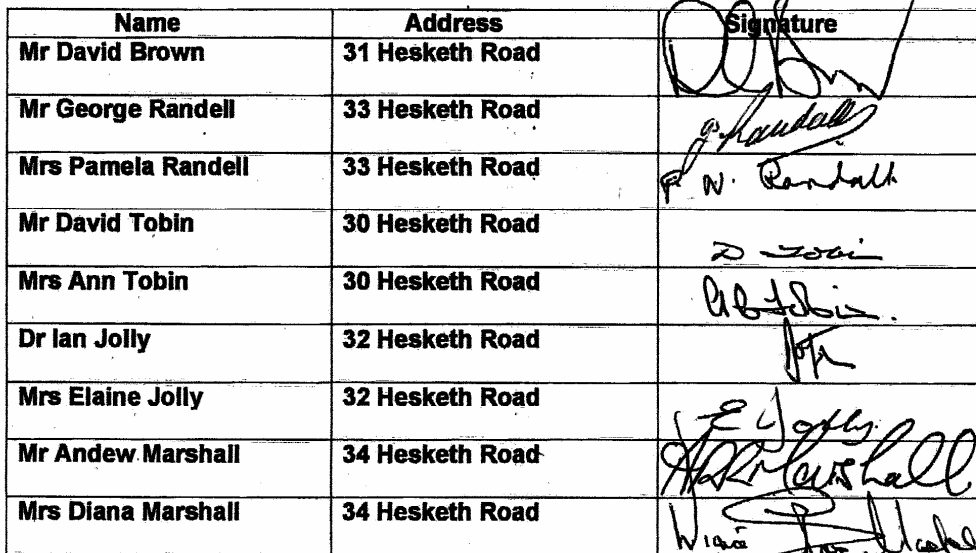 Name Address Signature
Mr David Brown 31 Hesketh Road
Mr George Randell 33 Hesketh Road G Randall
Mrs Pamela Randell 33 Hesketh Road P N. Randall
Mr David Tobin 30 Hesketh Road D Tobin
Mrs Ann Tobin 30 Hesketh Road Tobin.
Dr Ian Jolly 32 Hesketh Road
Mrs Elaine Jolly 32 Hesketh Road E Jolly
Mr Andew Marshall 34 Hesketh Road Marshall
Mrs Diana Marshall 34 Hesketh Road